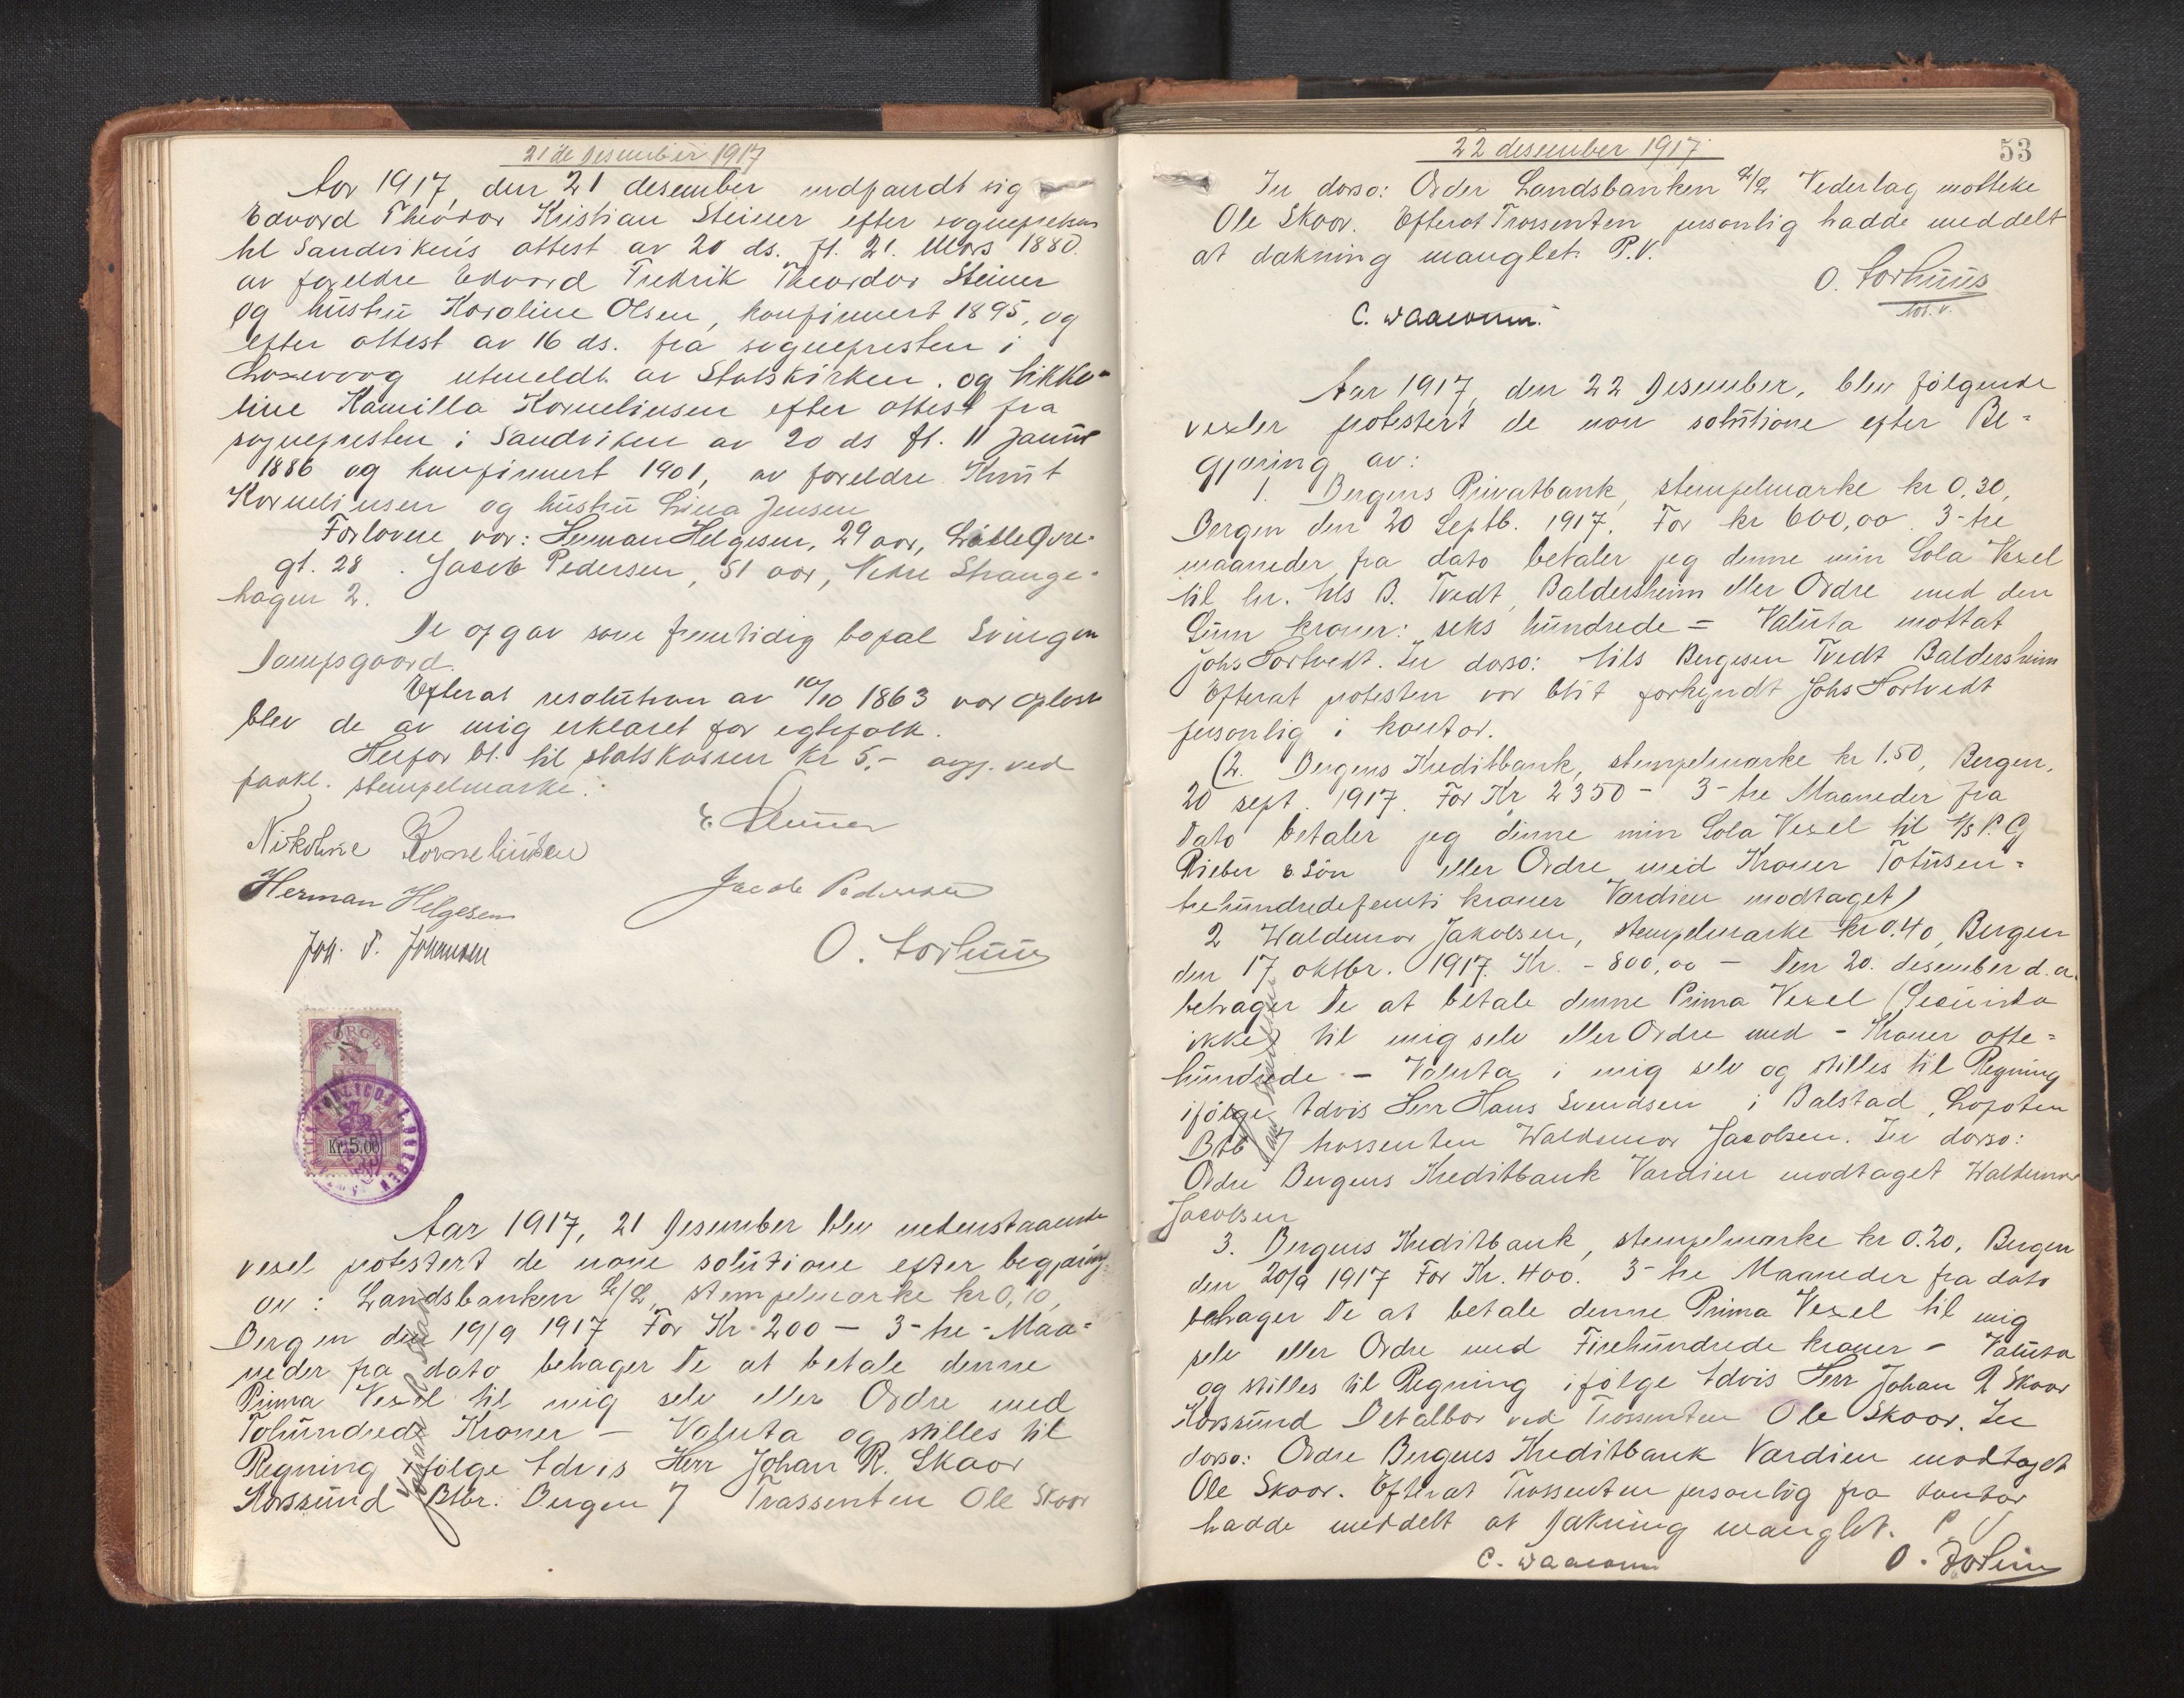 21 de desember 1917
Aar 1917, den 21 desember indfandt sig
Edvard Theodor Kristian Steiner efter sognepresten
til Sandvikens attest av 20 ds. ft. 21. Mars 1880.
av forældre Edvard Fredrik Theordor Steiner
og hustru Karoline Olsen, konfirmert 1895, og
efter attest av 16 ds. fra sognepresten i
Laxevaag utmeldt av Statskirken. og Nikko-
line Kamilla Korneliusen efter attest fra
sognepresten i Sandviken av 20 ds ft. 11 Januar
1886 og konfirmert 1901, av forældre Knut
Korneliusen og hustru Lina Jensen
Forlovere var: Herman Helgesen, 29 aar, Lille Øvre-
gt. 28. Jacob Pedersen, 51 aar, Nedre Strange-
hagen 2.
De opgav som fremtidig bopæl Svingen
Damsgaard.
Efterat resolution av 10/10 1863 var oplæst
blev de av mig erklæret for egtefolk.
Herfor bt. til statskassen kr 5,- avgj. ved
paakl. stempelmærke.
E. Steiner
Nikoline Korneliussen
Herman Helgesen
Jacob Pedersen
Joh. P. Johansen
O. Aarhuus
NORGE
Kr. 5.00
BERGEN
Aar 1917, 21 Desember blev nedenstaaende
vexel protestert de none solutione efter begjæring
av: Landsbanken A/S, stempelmærke kr 0,10,
Bergen den 19/9 1917 For Kr. 200 – 3-tre-Maa-
neder fra dato behager De at betale denne
Prima Vexel til mig selv eller Ordre med
Tohundrede Kroner – Valuta og stilles til
Regning ifølge Advis Herr Johan R. Skaar
Korssund Btbr. Bergen 7 Trassenten Ole Skaar
Johan R Skaar
22 desember 1917
53
In dorso: Order Landsbanken A/S Vederlag motteke
Ole Skaar. Efterat Trassenten personlig hadde meddelt
at dækning manglet. P.V.
O. Aarhuus
C. Waacorm.
Aar 1917, den 22 Desember, blev følgende
vexler protestert de non solutione efter Be-
gjæring av:
1. Bergens Privatbank, stempelmærke kr 0,30,
Bergen den 20 Septb. 1917. For kr 600,00 3-tre
maaneder fra dato betaler jeg denne min Sola Vexel
til hr. Nils B. Tvedt, Baldersheim eller Ordre med den
Sum kroner: seks hundrede = Valuta mottat
Johs Hortvedt. In dorso: Nils Bergesen Tvedt Baldersheim
Efterat protesten var blit forkyndt Johs Hortvedt
personlig i kontor.
(2. Bergens Kreditbank, stempelmærke kr 1.50, Bergen,
20 sept. 1917. For Kr 2350 – 3-tre Maaneder fra
Dato betaler jeg denne min Sola Vexel til A/S P. G
Rieber & Søn eller Ordre med Kroner Totusen-
trehundredefemti kroner Værdien modtaget)
2 Waldemar Jakobsen, stempelmærke kr 0.40, Bergen
den 17 oktbr. 1917. Kr. – 800,00 – Den 20. desember d.a.
behager De at betale denne Prima Vexel (Secunda
ikke) til mig selv eller Ordre med – Kroner otte-
hundrede – Valuta i mig selv og stilles til Regning
ifølge Advis Herr Hans Svendsen i Balstad, Lofoten
Btb 7 trassenten Waldemar Jacobsen. In dorso:
Ordre Bergens Kreditbank Værdien modtaget Waldemar
Jacobsen
3. Bergens Kreditbank, stempelmærke kr 0.20, Bergen
den 20/9 1917 For Kr. 400. 3-tre Maaneder fra dato
behager De at betale denne Prima Vexel til mig
selv eller Ordre med Firehundrede kroner – Valuta
og stilles til Regning ifølge Advis Herr Johan R Skaar
Korssund Betalbar ved Trassenten Ole Skaar. In
dorso: Ordre Bergens Kreditbank Værdien modtaget
Ole Skaar. Efterat Trassenten personlig fra kontor
hadde meddelt at dækning manglet. P V
C. Waacorm
O. Aarhuus